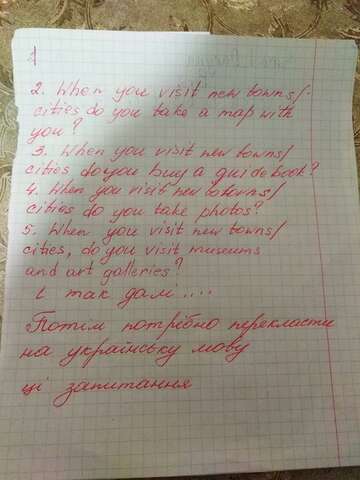 1
2. When you visit new towns/
cities do you take a map with
you?
3. When you visit new towns/
cities, do you buy a guidebook?
4. When you visit new towns/
cities do you take photos?
5. When you visit new towns/
cities, do you visit museums
and art galleries?
і так далі....
Потім потрібно перекласти
на українську мову
ці запитання